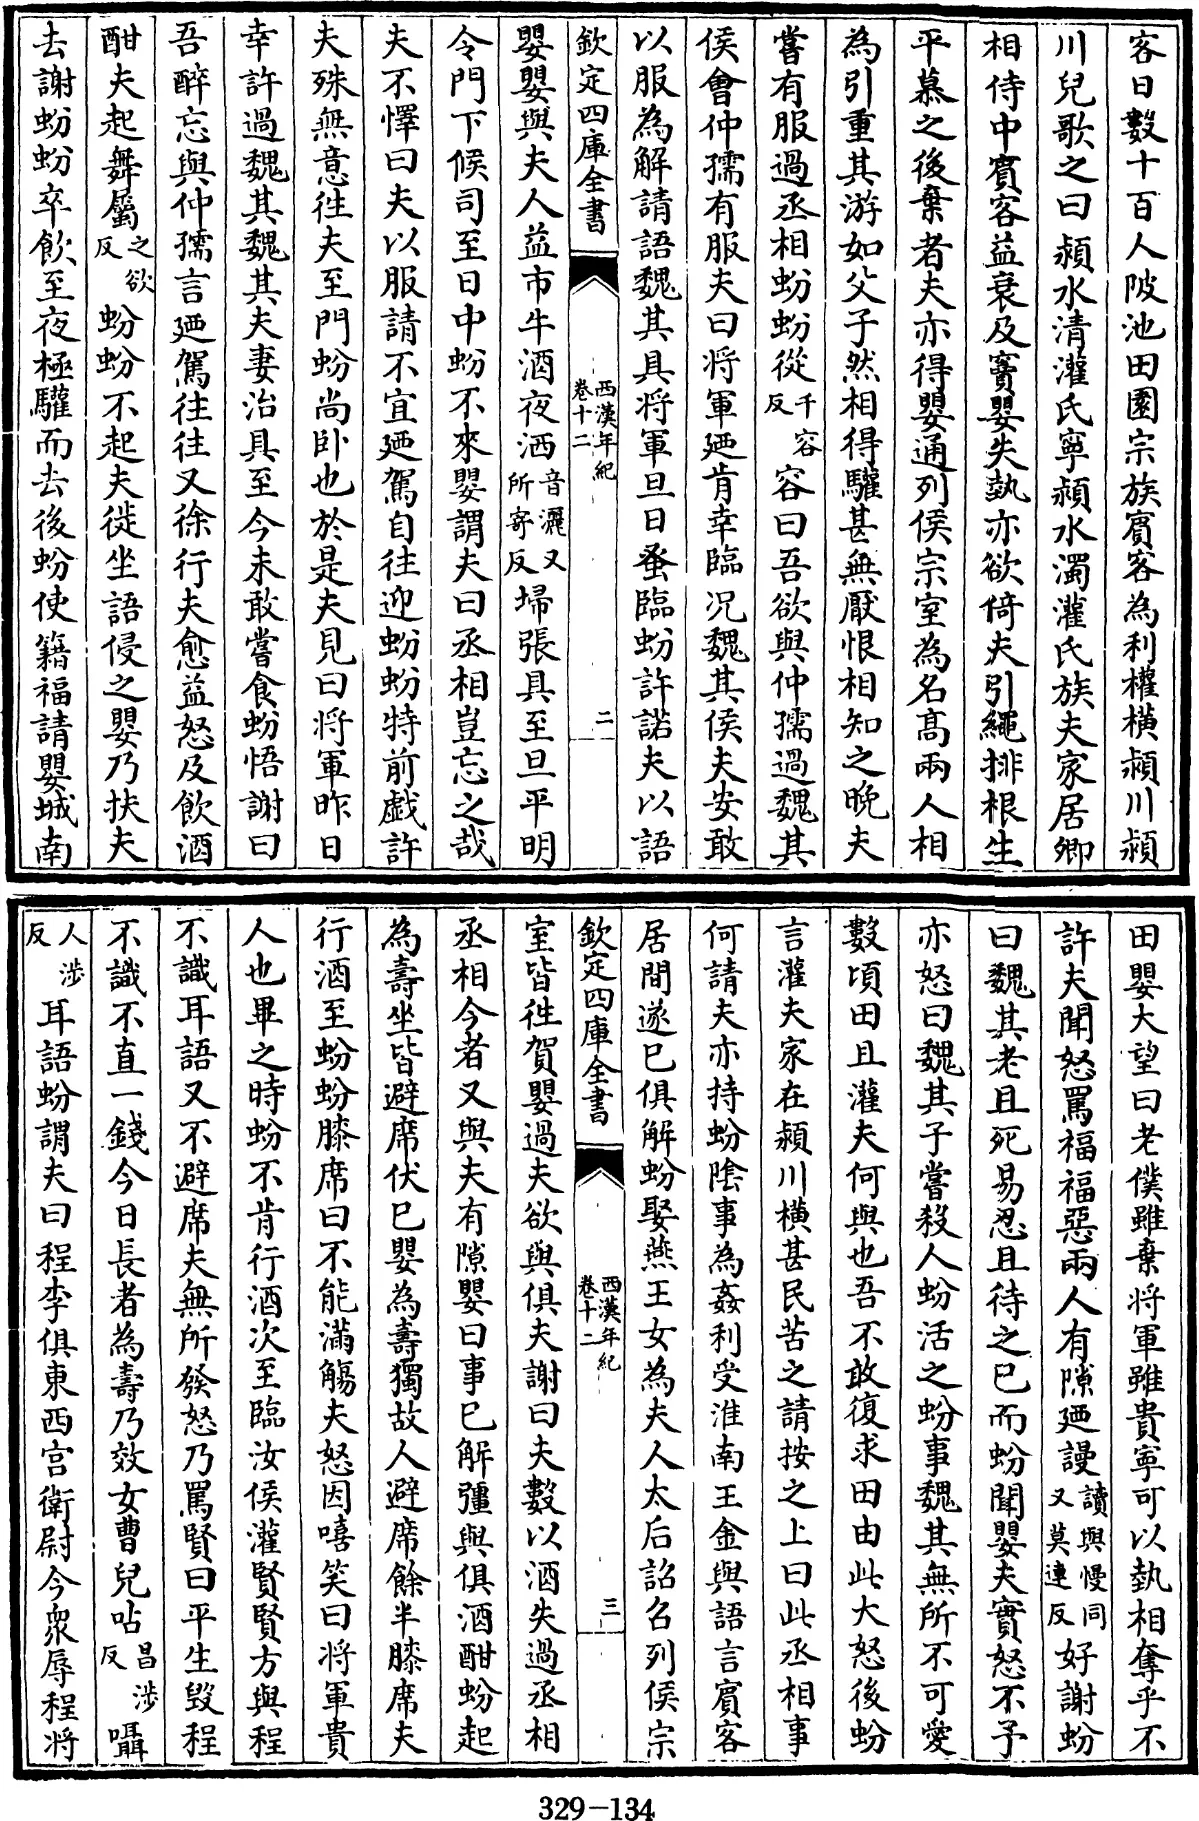 客日數十百人陂池田園宗族賔客為利權橫潁川潁
川兒歌之曰潁水清灌氏寧潁水濁灌氏族夫家居卿
相侍中賔客益衰及竇嬰失埶亦欲倚夫引繩排根生
平慕之後棄者夫亦得嬰通列侯宗室為名髙兩人相
為引重其游如父子然相得驩甚無厭恨相知之晚夫
嘗有服過丞相蚡蚡從千容反容曰吾欲與仲孺過魏其
侯會仲孺有服夫曰将軍廼肯幸臨况魏其侯夫安敢
以服為解請語魏其具将軍旦日蚤臨蚡許諾夫以語
欽定四庫全書
西漢年紀
卷十二
二
嬰嬰與夫人益市牛酒夜洒音灑又所寄反埽張具至旦平明
令門下候司至日中蚡不來嬰謂夫曰丞相豈忘之哉
夫不懌曰夫以服請不宜廼駕自往迎蚡蚡特前戯許
夫殊無意徃夫至門蚡尚卧也於是夫見曰将軍昨日
幸許過魏其魏其夫妻治具至今未敢嘗食蚡悟謝曰
吾醉忘與仲孺言廼駕往往又徐行夫愈益怒及飲酒
酣夫起舞屬之欲反蚡蚡不起夫徙坐語侵之嬰乃扶夫
去謝蚡蚡卒飲至夜極驩而去後蚡使籍福請嬰城南
田嬰大望曰老僕雖棄将軍雖貴寧可以埶相奪乎不
許夫聞怒罵福福惡兩人有隙廼謾讀與慢同又莫連反好謝蚡
曰魏其老且死易忍且待之已而蚡聞嬰夫實怒不予
亦怒曰魏其子嘗殺人蚡活之蚡事魏其無所不可愛
數頃田且灌夫何與也吾不敢復求田由此大怒後蚡
言灌夫家在潁川橫甚民苦之請按之上曰此丞相事
何請夫亦持蚡陰事為姦利受淮南王金與語言賔客
居間遂已俱解蚡娶燕王女為夫人太后詔召列侯宗
欽定四庫全書
西漢年紀
卷十二
三
室皆徃賀嬰過夫欲與俱夫謝曰夫數以酒失過丞相
丞相今者又與夫有隙嬰曰事已解彊與俱酒酣蚡起
為壽坐皆避席伏已嬰為壽獨故人避席餘半膝席夫
行酒至蚡蚡膝席曰不能滿觴夫怒因嘻笑曰将軍貴
人也畢之時蚡不肯行酒次至臨汝侯灌賢賢方與程
不識耳語又不避席夫無所發怒乃罵賢曰平生毀程
不識不直一錢今日長者為壽乃效女曹兒呫昌涉反囁
人涉反耳語蚡謂夫曰程李俱東西宫衛尉今衆辱程将
329-134